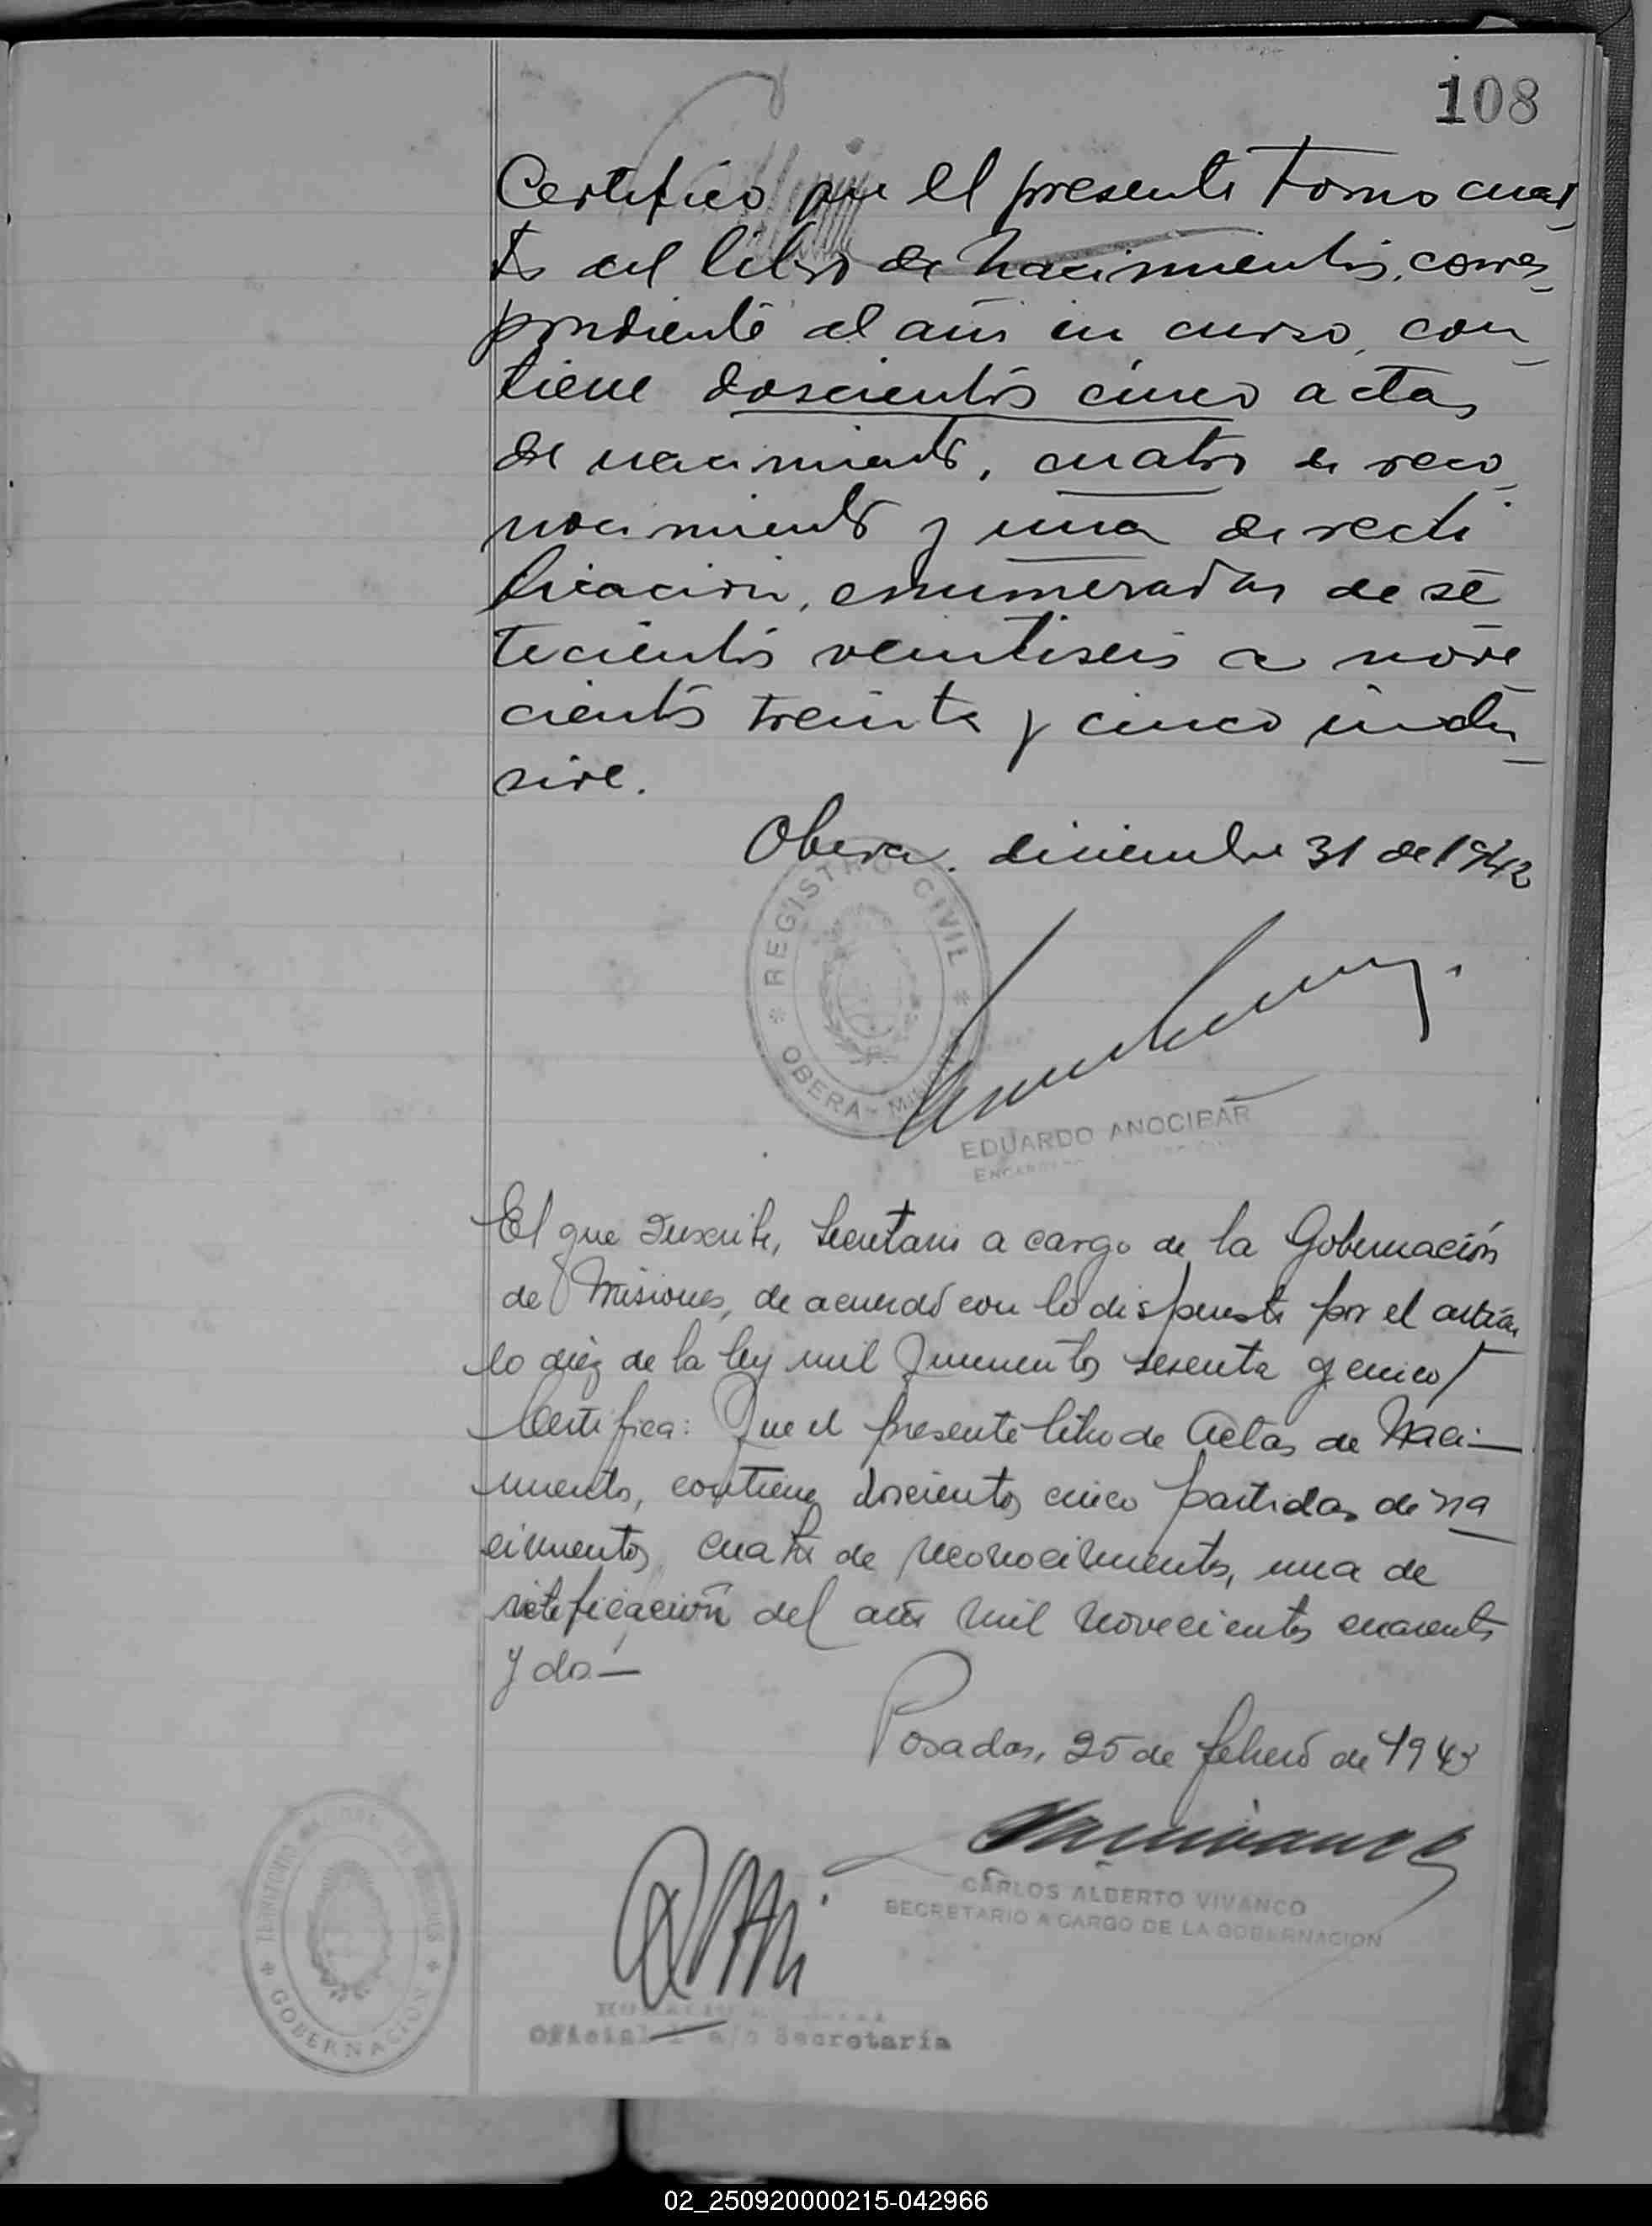 108
Certifico que el presente Tomo cuar-
to del libro de Nacimientos, corres-
pondiente al año en curso, con-
tiene doscientos cinco actas
de nacimiento, cuatro de reco-
nocimiento y una de recti
ficación, enumeradas de se
tecientos veintiseis a nove
cientos treinta y cinco inclu-
sive.
Obera. diciembre 31 de 1942
* REGISTRO CIVIL *
OBERA - MISIONES
EDUARDO ANOCIBAR
El que suscribe, Secretario a cargo de la Gobernación
de Misiones, de acuerdo con lo dispuesto por el artícu-
lo diez de la ley mil quinientos sesenta y cinco/
Certifica: Que el presente libro de Actas de Naci-
miento, contiene doscientos cinco partidas de na-
cimientos, cuatro de reconocimientos, una de
retificación del año mil novecientos cuarenta
y dos—
Posadas, 25 de febrero de 1943
CARLOS ALBERTO VIVANCO
SECRETARIO A CARGO DE LA GOBERNACION
* TERRITORIO NACIONAL DE MISIONES *
GOBERNACION
Oficial 1º a/c Secretaría
02_250920000215-042966